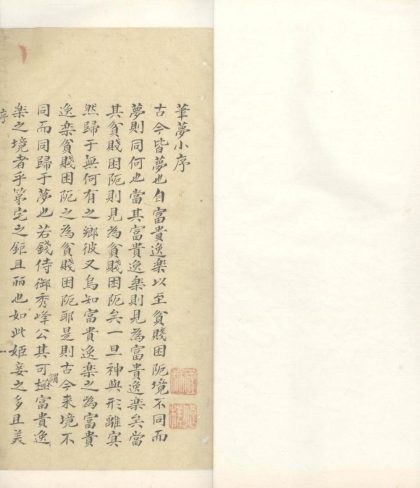 筆夢小序
古今皆夢也自富貴逸樂以至貧賤困阨境不同而
夢則同何也當其富貴逸樂則見為富貴逸樂矣當
其貧賤困阨則見為貧賤困阨矣一旦神與形離寞
然歸于無何有之鄉彼又烏知富貴逸樂之為富貴
逸樂貧賤困阨之為貧賤困阨耶是則古今来境不
同而同歸于夢也若錢侍御秀峰公其可極富貴逸
謂
樂之境者乎第宅之鉅且麗也如此姬妾之多且美
序
一